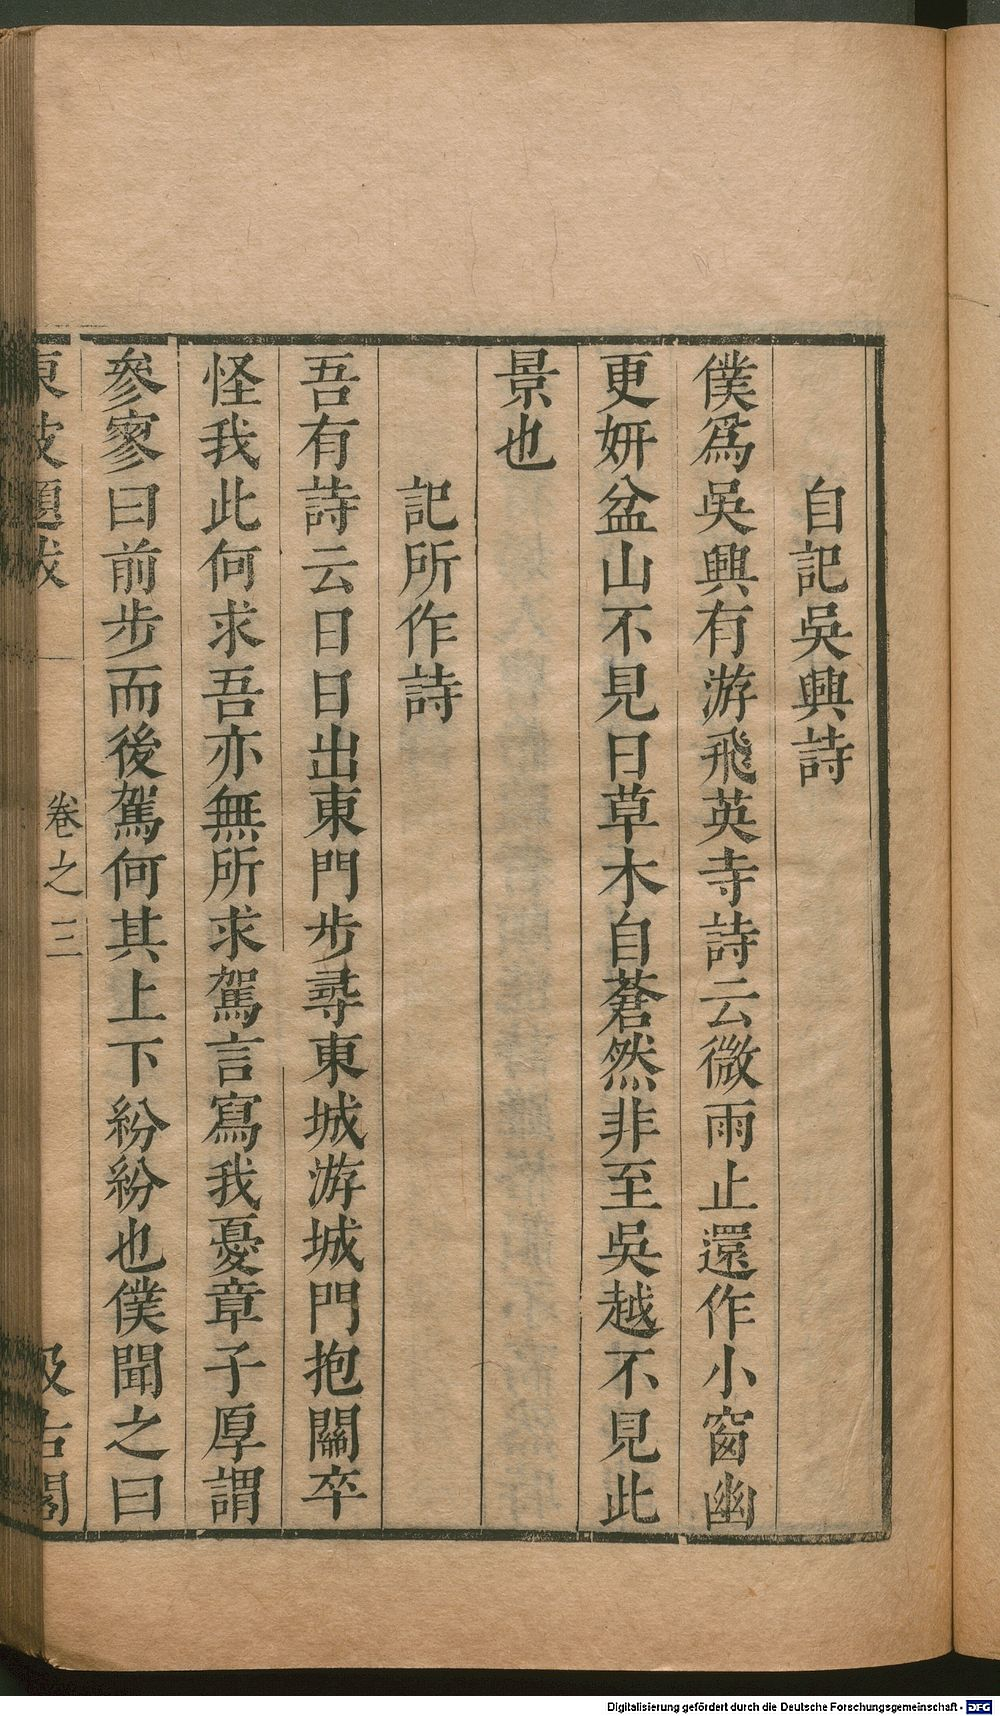 自記吳興詩
僕爲吳興有游飛英寺詩云微雨止還作小窗幽
更妍盆山不見日草木自蒼然非至吳越不見此
景也
記所作詩
吾有詩云日日出東門步尋東城游城門抱關卒
怪我此何求吾亦無所求駕言寫我憂章子厚謂
參寥曰前步而後駕何其上下紛紛也僕聞之曰
東坡題跋 卷之三 汲古閣
Digitalisierung gefördert durch die Deutsche Forschungsgemeinschaft - DFG